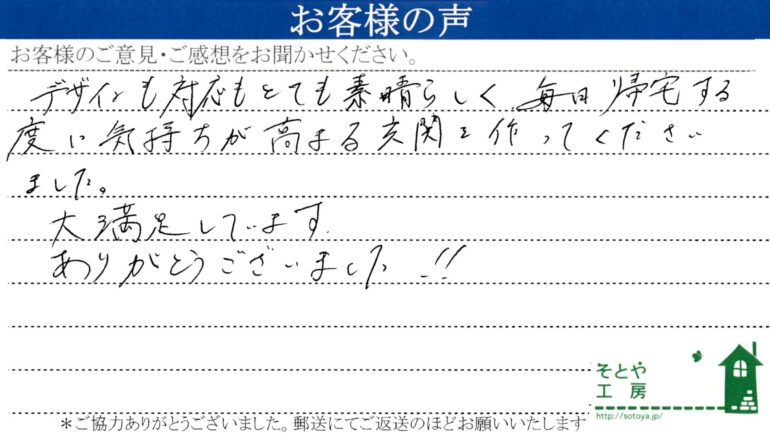 お客様の声
お客様のご意見・ご感想をお聞かせください。
デザインも対応もとても素晴らしく、毎日帰宅する
度に気持ちが高まる玄関を作ってください
ました。
大満足しています。
ありがとうございました!!
そとや
工房
http://sotoya.jp/
＊ご協力ありがとうございました。郵送にてご返送のほどお願いいたします